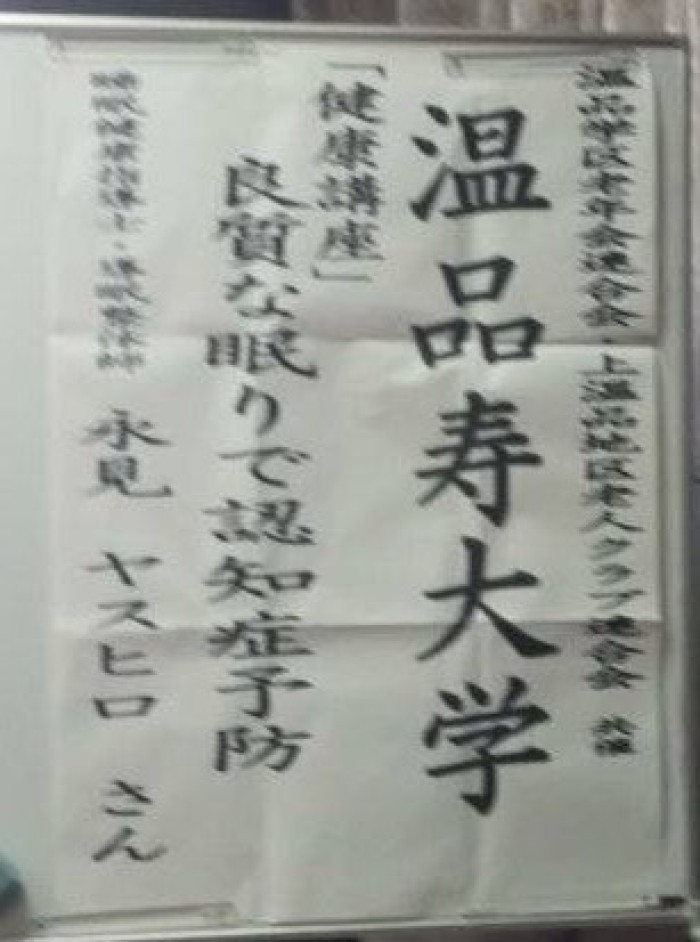 温品学区老年会連合会・上温品地区老人クラブ連合会 共催
温品寿大学
「健康講座」
良質な眠りで認知症予防
永見 ヤスヒロ さん